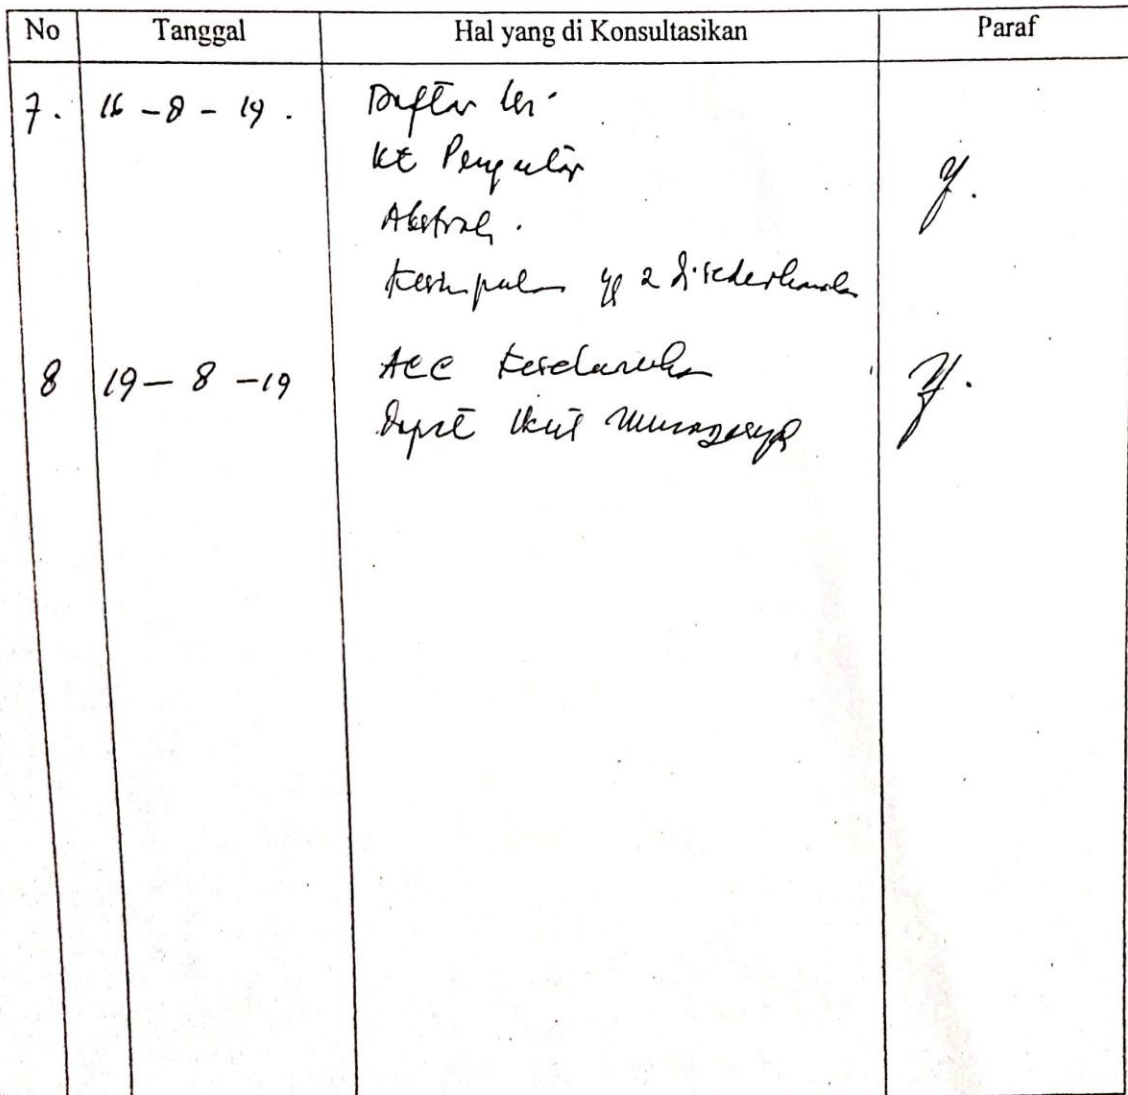 No Tanggal Hal yang di Konsultasikan Paraf
7. 16 - 8 - 19 . Daftar Isi
Kt Pengantar
Abstrak .
Kesimpulan yg 2 disederhanakan
8 19 - 8 - 19 Acc Keseluruhan
Dapat ikut Munaqasya